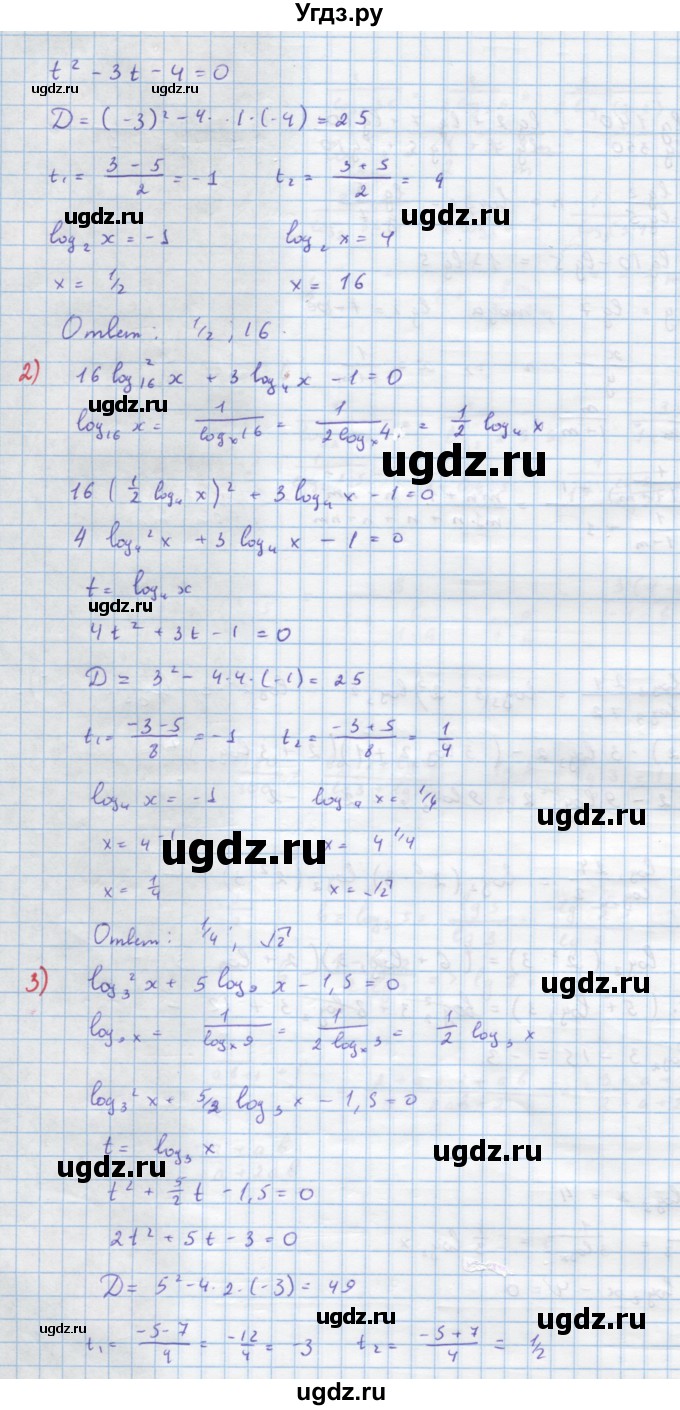 Угдз.ру
t² - 3t - 4 = 0
ugdz.ru ugdz.ru
D = (-3)² - 4 · 1 · (-4) = 25
t₁ = (3 - 5)/2 = -1 t₂ = (3 + 5)/2 = 4
ugdz.ru ugdz.ru
log₂ x = -1 log₂ x = 4
x = 1/2 x = 16
Ответ: 1/2 ; 16.
2) 16 log₁₆² x + 3 log₄ x - 1 = 0
ugdz.ru
log₁₆ x = 1/(logₓ 16) = 1/(2 logₓ 4) = 1/2 log₄ x
ugdz.ru
16 (1/2 log₄ x)² + 3 log₄ x - 1 = 0
4 log₄² x + 3 log₄ x - 1 = 0
t = log₄ x
ugdz.ru
4t² + 3t - 1 = 0
D = 3² - 4·4·(-1) = 25
t₁ = (-3 - 5)/8 = -1 t₂ = (-3 + 5)/8 = 1/4
log₄ x = -1 log₄ x = 1/4
ugdz.ru
x = 4⁻¹ x = 4^(1/4)
ugdz.ru
x = 1/4 x = √2
Ответ: 1/4 ; √2
3) log₃² x + 5 log₉ x - 1,5 = 0
ugdz.ru
log₉ x = 1/(logₓ 9) = 1/(2 logₓ 3) = 1/2 log₃ x
log₃² x + 5/2 log₃ x - 1,5 = 0
t = log₃ x
ugdz.ru ugdz.ru
t² + 5/2 t - 1,5 = 0
2t² + 5t - 3 = 0
D = 5² - 4·2·(-3) = 49
ugdz.ru ugdz.ru ugdz.ru
t₁ = (-5 - 7)/4 = -12/4 = -3 t₂ = (-5 + 7)/4 = 1/2
ugdz.ru